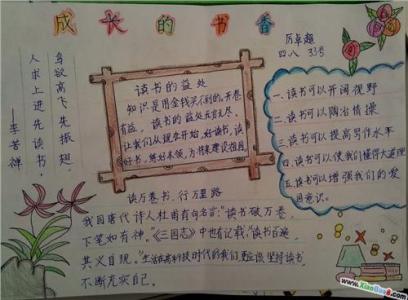 成长的书香
厉卓超
四八 33号
鸟欲高飞先振翅
人求上进先读书
——李苦禅
读书的益处
知识是用金钱买不到的。开卷
有益，读书的益处无穷无尽。
让我们从现在开始，好读书，读
好书，
将来建设祖国
一、读书可以开阔视野
二、读书可以陶冶情操
三、读书可以提高写作水平
四、读书可以使我们懂得大道理
五、读书可以增强我们的爱
国意识。
读万卷书，行万里路
我国唐代诗人杜甫有句名言："读书破万卷，
下笔如有神。"《三国志》中也有记载："读书百遍，
其义自现。"生活在高科技时代的我们，更应该坚持读书，
不断充实自己。